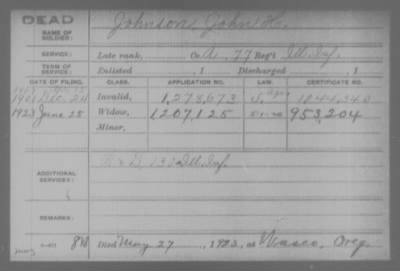 DEAD
NAME OF SOLDIER: Johnson, John H.
SERVICE: Late rank, Co. A, 77 Reg't Ill. Inf.
TERM OF SERVICE: Enlisted , 1 Discharged , 1
DATE OF FILING. CLASS. APPLICATION NO. LAW. CERTIFICATE NO.
1901 Dec. 24 Invalid, 1,278,673
1923 June 25 Widow, 1207,125 953,204
Minor,
ADDITIONAL SERVICES: Ill. Inf.
REMARKS:
Died May 27, 1923, at Wasco, Oreg.